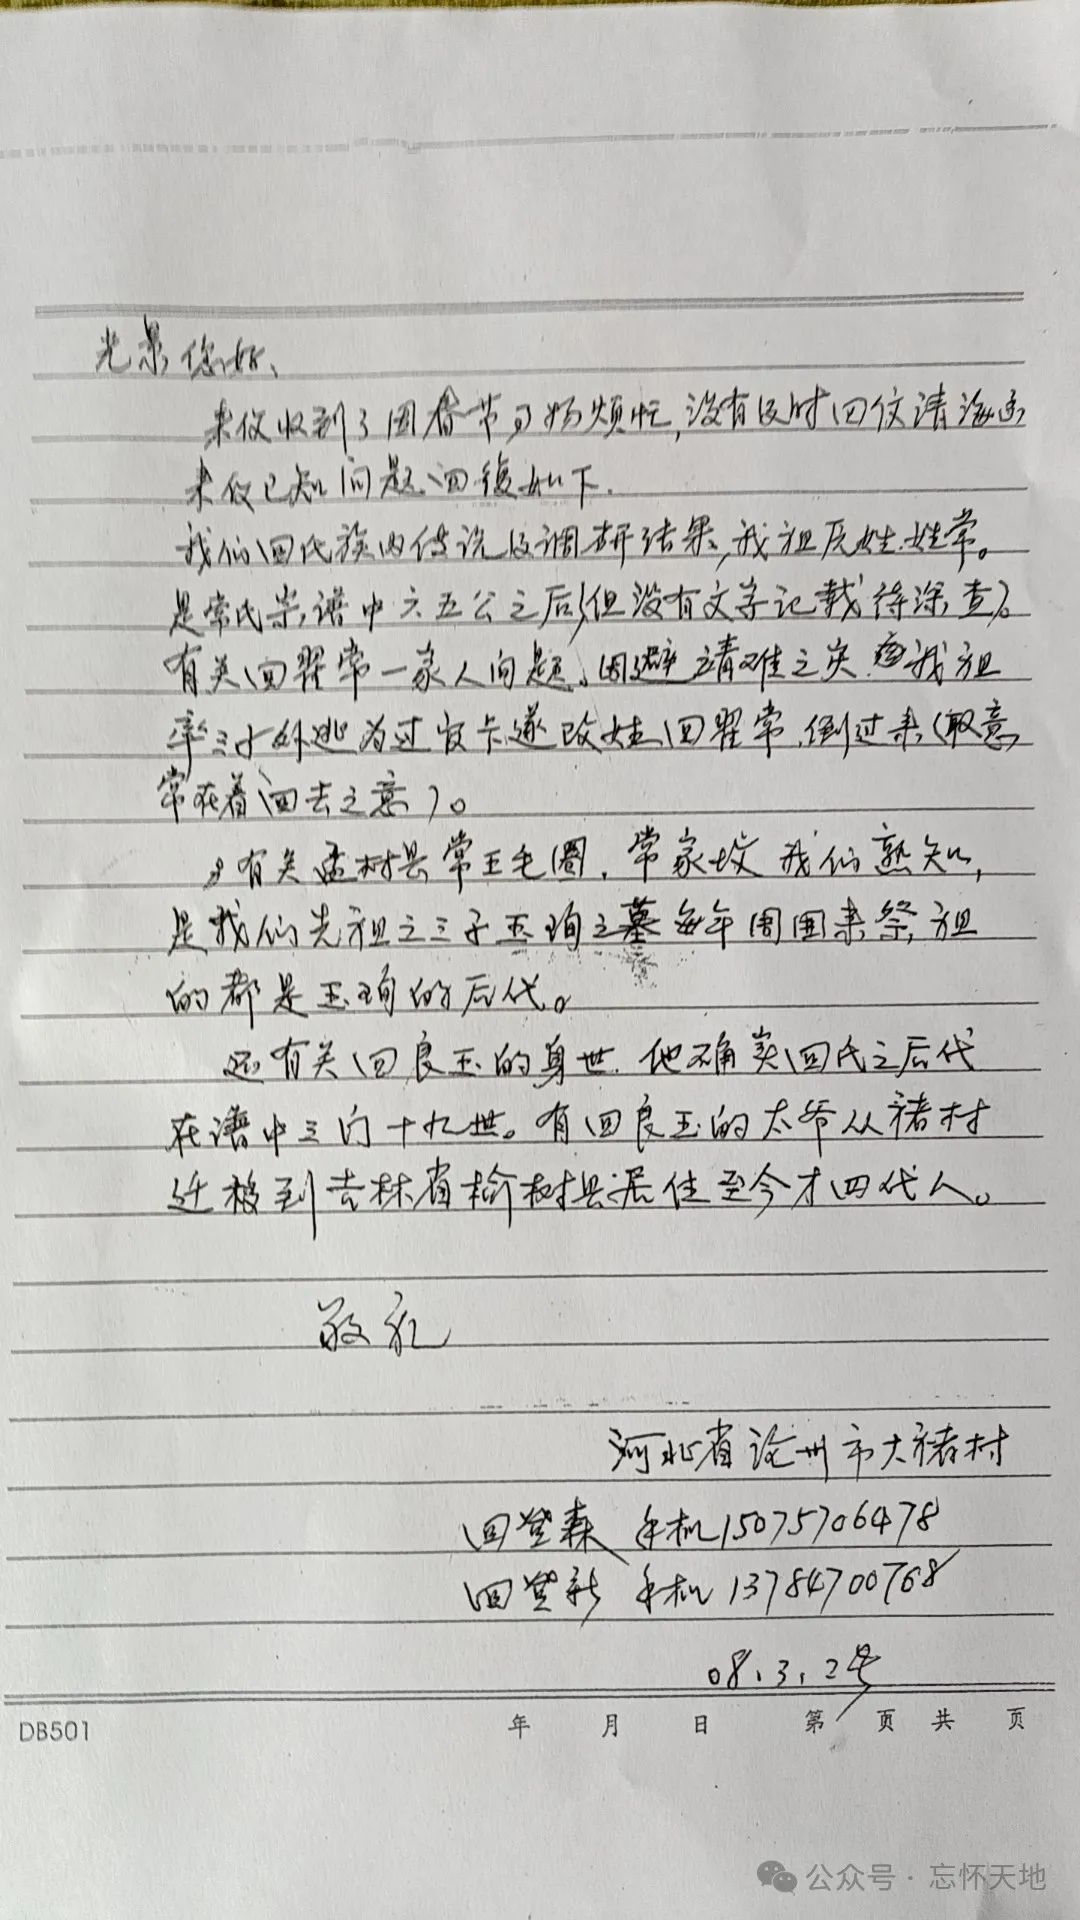 光景您好、
来仅收到了因春节了妈烦忙,没有及时回仅请海函
来仅已知问题回復如下.
我们回氏族内传说及调查研结果,我祖原姓.姓常。
是常氏宗谱中六五公之后,(但没有文字记载待深查)。
有关回翟常一家人问题。因避靖难之灾 我祖
率三子外逃为过官卡遂改姓回翟常.倒过来(取意
常在着回去之意)。
有关孟村县常王毛圈.常家坟我们熟知,
是我们先祖之三子玉珣之墓每年周围来祭祖
的都是玉珣的后代。
还有关回良玉的身世.他确实回氏之后代
在谱中三门十九世。有回良玉的太爷从褚村
迁移到吉林省榆树县居住至今才四代人。
敬礼
河北省沧州市大褚村
回登森 手机15075706478
回登新 手机13784700768
08.3.2号
DB501 年 月 日 第 页 共 页
公众号·忘怀天地